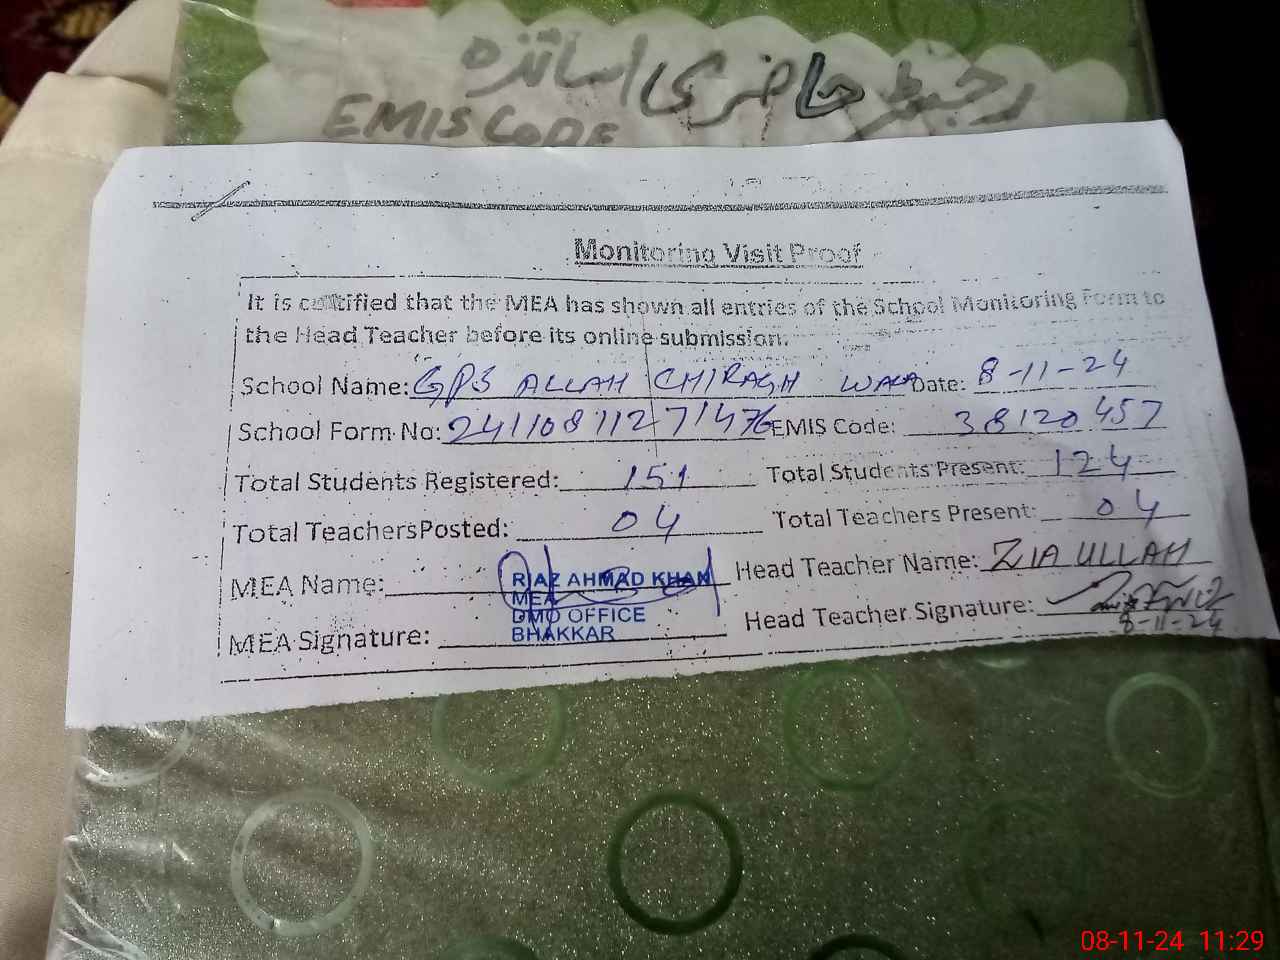 رجسٹر حاضری اساتذہ
EMIS CODE
Monitoring Visit Proof
It is certified that the MEA has shown all entries of the School Monitoring Form to
the Head Teacher before its online submission.
School Name: GPS ALLAH CHIRAGH WALA Date: 8-11-24
School Form No: 2411081127 1476 EMIS Code: 38120457
Total Students Registered: 151 Total Students Present: 124
Total TeachersPosted: 04 Total Teachers Present: 04
MEA Name: RIAZ AHMAD KHAN Head Teacher Name: ZIA ULLAH
MEA
DMO OFFICE
MEA Signature: BHAKKAR Head Teacher Signature:
8-11-24
08-11-24 11:29